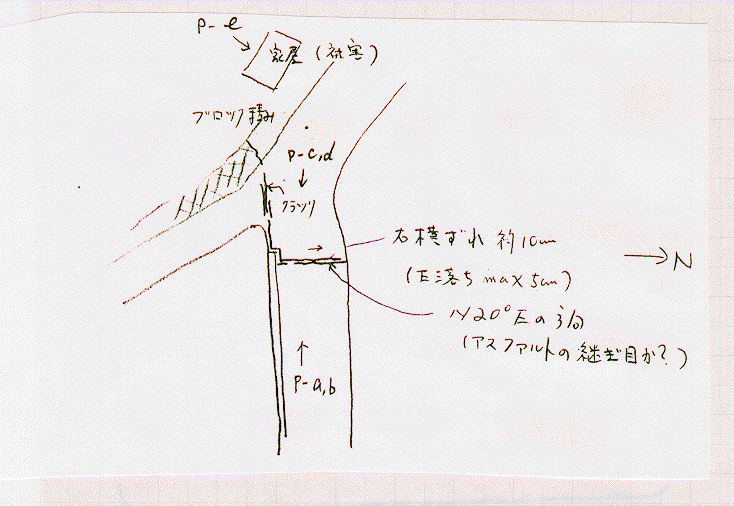 P-e
家屋(被害)
ブロック積み
P-c,d
クラック
右横ずれ 約10cm
(E落ち max 5cm)
N20°Eの
(アスファルトの継ぎ目か?)
N
P-a,b